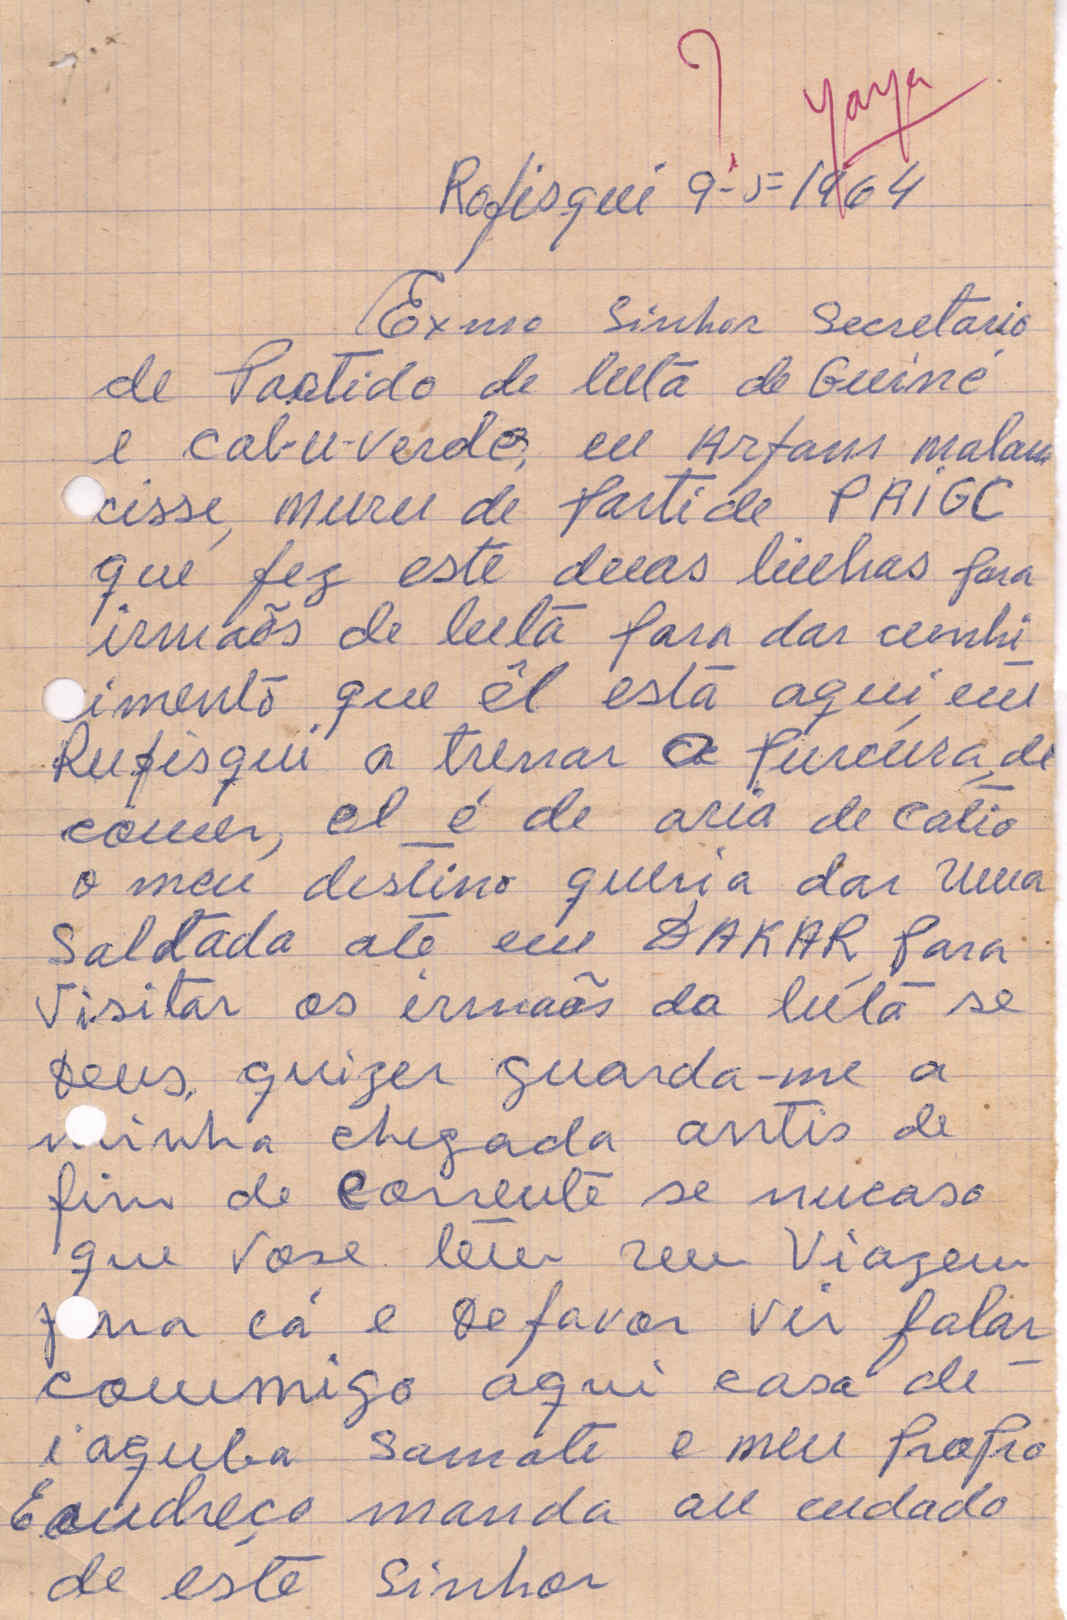 ? Yaya
Rofisqui 9-5=1964
Exmo Sinhor Secretario
de Partido de luta de Guiné
e cab-u-verde, eu Arfam malam
cisse, muru de partide PAIGC
que fez este duas linhas para
irmaõs de luta para dar cunhi
imento que êl esta aqui em
Rufisqui a trenar a purcura de
comer, el é de aria de catio
o meu destino queria dar uma
Saldada ate em DAKAR para
Visitar os irmaõs da luta se
Deus, quizer guarda-me a
minha chegada antis de
fim de corrente se nucaso
que vose têm um Viagem
para cá e de favor vir falar
commigo aqui casa de
iaquba Samate e meu propro
Eandreço manda au cudado
de este Sinhor